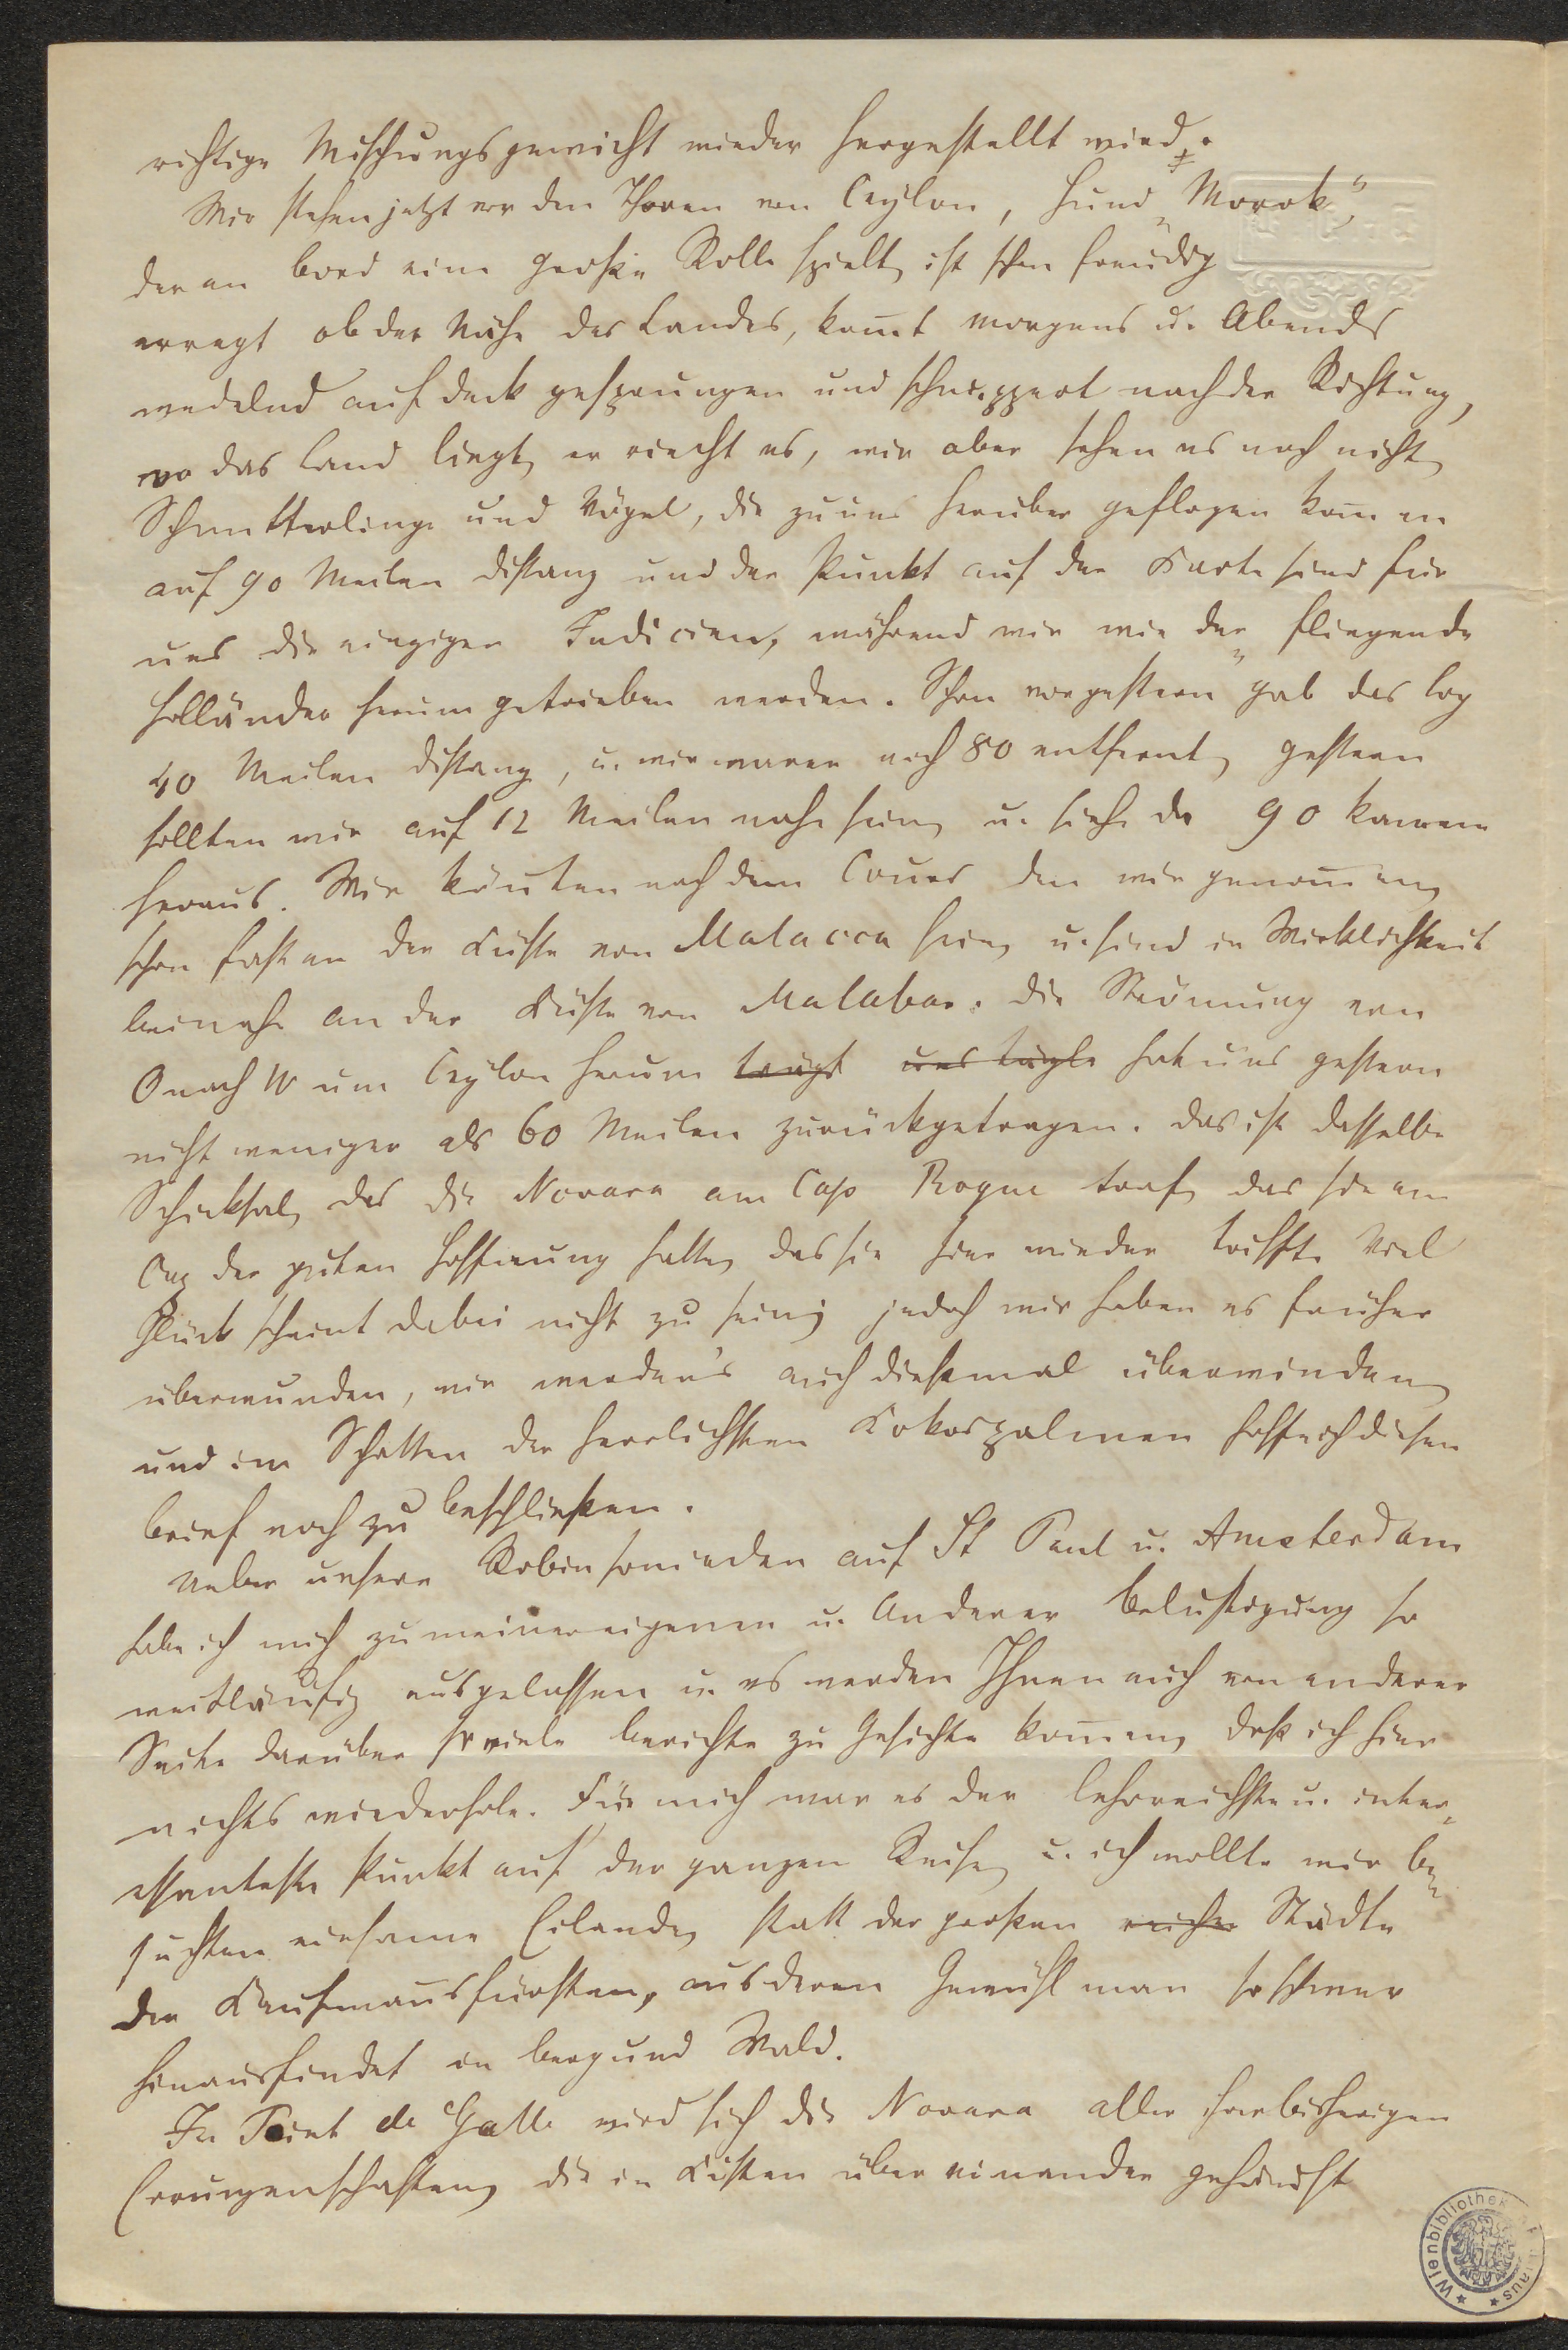 richtige Mischungsgewicht wieder hergestellt wird.
Wir stehen jetzt vor den Thoren von Ceylon, Hund „Morok“,
der an Bord eine große Rolle spielt, ist schon freudig
erregt ob der Nähe des Landes, kom̅t morgens u. Abends
wedelnd auf Deck gesprungen und schnuppert nach der Richtung,
wo das Land liegt, er riecht es, wir aber sehen es noch nicht,
Schmetterlinge und Vögel, die zu uns herüber geflogen kom̅en
auf 90 Meilen Distanz und der Punkt auf der Karte sind für
uns die einzigen Indicien, während wir wie der „fliegende
Holländer herum getrieben werden. Schon vorgestern“ gab das Log
40 Meilen Distanz, u. wir waren noch 80 entfernt, gestern
sollten wir auf 12 Meilen nahe sein, u. siehe da 90 kamen
heraus. Wir könnten nach dem Cours den wir genom̅en,
schon fast an der Küste von Malacca sein, u. sind in Wirklichkeit
beinahe an der Küste von Malabar. Die Strömung von
O nach W um Ceylon herum trägt uns tägli hat uns gestern
nicht weniger als 60 Meilen zurückgetragen. Das ist dasselbe
Schicksal, das die Novara am Cap Roque traf, das sie am
Cap der guten Hoffnung hatte, das sie hier wieder trifft. Viel
Glück scheint dabei nicht zu sein; jedoch wir haben es früher
überwunden, wir werden's auch dießmal überwinden,
und im Schatten der herrlichsten Kokospalmen hoffe ich diesen
Brief noch zu beschließen.
Ueber unsere Robinsoniaden auf St Paul u. Amsterdam
habe ich mich zu meiner eigenen u. Anderer Belustigung so
weitläufig ausgelassen u. es werden Ihnen auch von anderer
Seite darüber so viele Berichte zu Gesichte kom̅en, daß ich hier
nichts wiederhole. Für mich war es der lehrreichste u. inter-
essanteste Punkt auf der ganzen Reise, u. ich wollte wir be-
suchten einsame Eilande, statt der großen reichen Städte
der Kaufmannsfürsten, aus deren Gewühl man so schwer
hinausfindet in Berg und Wald.
In Point de Galle wird sich die Novara aller ihrer bisherigen
Errungenschaften, die in Kisten über einander gehäuft
Wienbibliothek